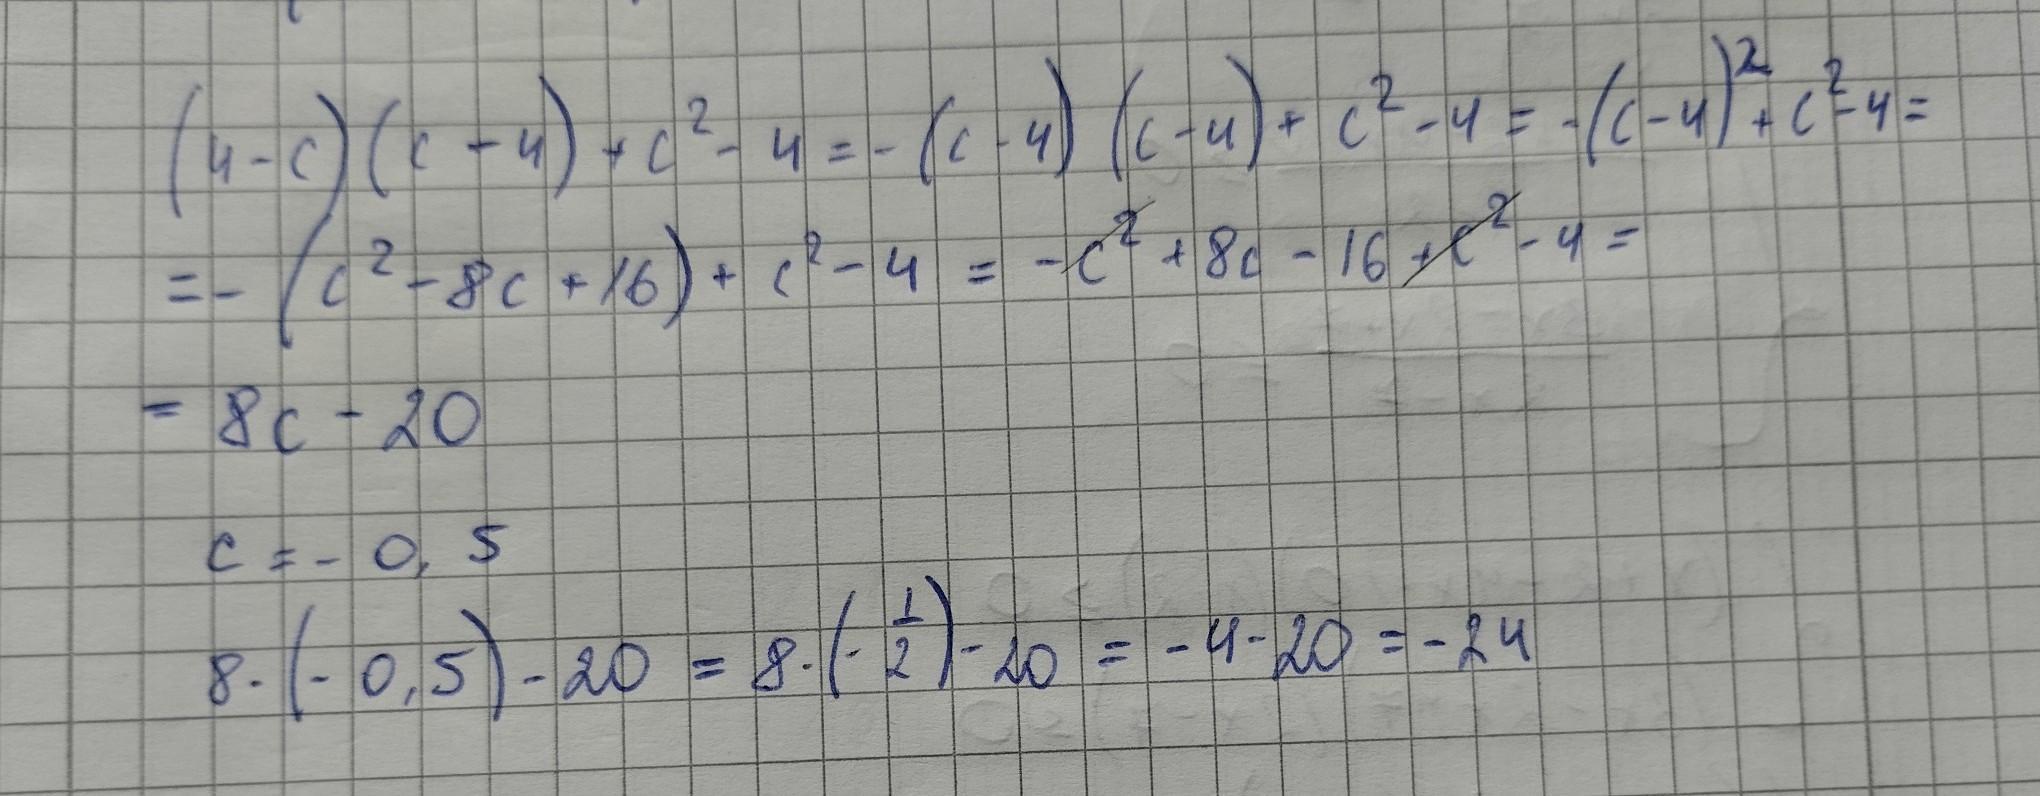 (4-c)(c-4)+c²-4=-(c-4)(c-4)+c²-4=-(c-4)²+c²-4=
=-(c²-8c+16)+c²-4=-c²+8c-16+c²-4=
=8c-20
c=-0,5
8·(-0,5)-20=8·(-1/2)-20=-4-20=-24